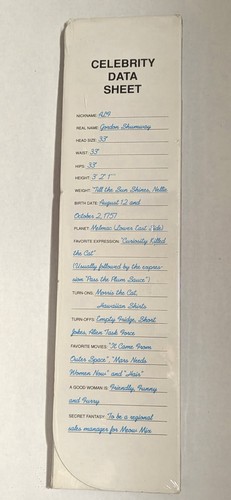 CELEBRITY
DATA
SHEET
NICKNAME: ALF
REAL NAME: Gordon Shumway
HEAD SIZE: 33"
WAIST: 33"
HIPS: 33"
HEIGHT: 3' 2' 1"
WEIGHT: "Till the Sun Shines, Nellie
BIRTH DATE: August 12 and
October 2, 1757
PLANET: Melmac (Lower East Side)
FAVORITE EXPRESSION: "Curiosity Killed
the Cat"
(Usually followed by the expres-
sion "Pass the Plum Sauce")
TURN-ONS: Morris the Cat,
Hawaiian Shirts
TURN-OFFS: Empty Fridge, Short
Jokes, Alien Task Force
FAVORITE MOVIES: "It Came From
Outer Space", "Mars Needs
Women Now" and "Hair"
A GOOD WOMAN IS: Friendly, Funny
and Furry
SECRET FANTASY: To be a regional
sales manager for Meow Mix